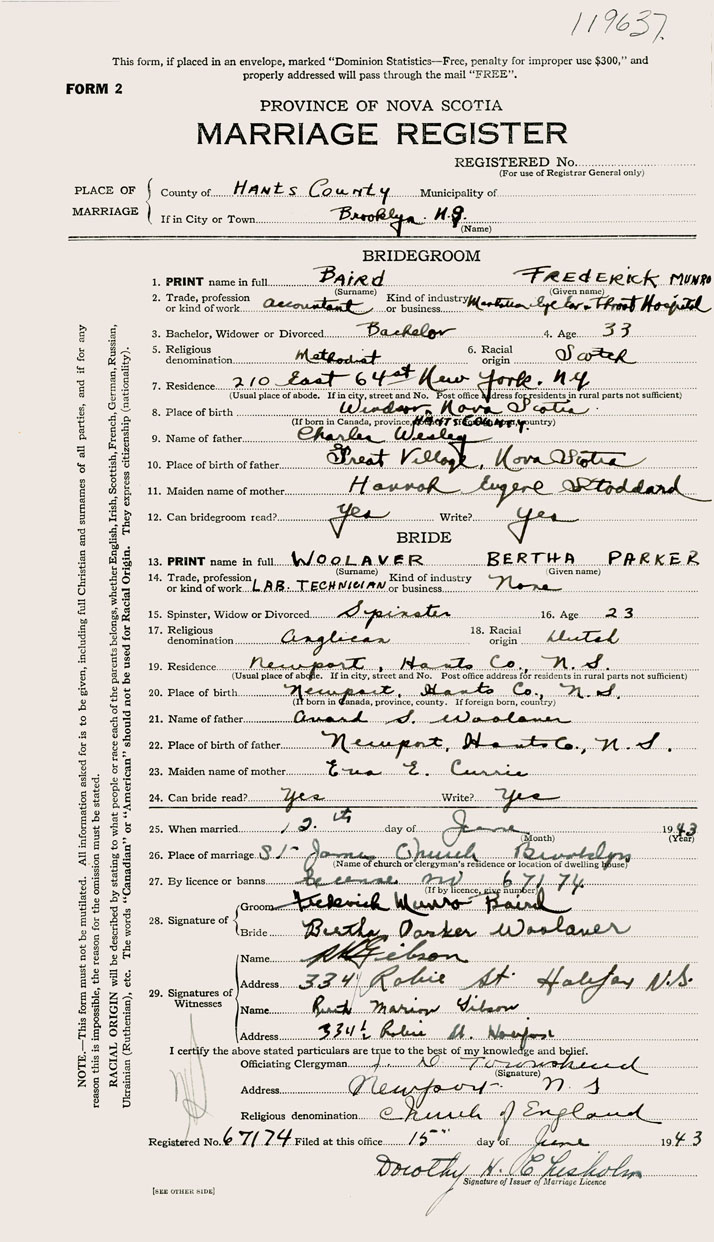 119637
This form, if placed in an envelope, marked "Dominion Statistics—Free, penalty for improper use $300," and
properly addressed will pass through the mail "FREE".
FORM 2
PROVINCE OF NOVA SCOTIA
MARRIAGE REGISTER
REGISTERED No.
(For use of Registrar General only)
PLACE OF MARRIAGE
County of HANTS COUNTY Municipality of
If in City or Town Brooklyn N.S.
(Name)
BRIDEGROOM
1. PRINT name in full BAIRD FREDERICK MUNRO
(Surname) (Given name)
2. Trade, profession or kind of work accountant Kind of industry or business Manhattan Eye Ear & Throat Hospital
3. Bachelor, Widower or Divorced Bachelor 4. Age 33
5. Religious denomination Methodist 6. Racial origin Scotch
7. Residence 210 East 64st New York. NY
(Usual place of abode. If in city, street and No. Post office address for residents in rural parts not sufficient)
8. Place of birth Windsor, Nova Scotia
HANTS COUNTY.
(If born in Canada, province, county. If foreign born, country)
9. Name of father Charles Wesley
10. Place of birth of father Great Village, Nova Scotia
11. Maiden name of mother Hannah Eugene Stoddard
12. Can bridegroom read? Yes Write? Yes
BRIDE
13. PRINT name in full WOOLAVER BERTHA PARKER
(Surname) (Given name)
14. Trade, profession or kind of work LAB. TECHNICIAN Kind of industry or business None
15. Spinster, Widow or Divorced Spinster 16. Age 23
17. Religious denomination Anglican 18. Racial origin Dutch
19. Residence Newport, Hants Co., N.S.
(Usual place of abode. If in city, street and No. Post office address for residents in rural parts not sufficient)
20. Place of birth Newport, Hants Co., N.S.
(If born in Canada, province, county. If foreign born, country)
21. Name of father Avard S. Woolaver
22. Place of birth of father Newport, Hants Co., N.S.
23. Maiden name of mother Eva E. Currie
24. Can bride read? Yes Write? Yes
25. When married 12th day of June 1943
(Month) (Year)
26. Place of marriage St James Church Brooklyn
(Name of church or clergyman's residence or location of dwelling house)
27. By licence or banns License no 67174
(If by licence, give number)
28. Signature of
Groom Frederick Munro Baird
Bride Bertha Parker Woolaver
29. Signatures of Witnesses
Name Gibson
Address 334½ Robie St Halifax N.S.
Name Ruth Marion Gibson
Address 334½ Robie St. Halifax
I certify the above stated particulars are true to the best of my knowledge and belief.
Officiating Clergyman J. D Townshend
(Signature)
Address Newport N.S
Religious denomination Church of England
Registered No. 67174 Filed at this office 15" day of June 1943
Dorothy H. Chisholm
Signature of Issuer of Marriage Licence
[SEE OTHER SIDE]
NOTE.—This form must not be mutilated. All information asked for is to be given, including full Christian and surnames of all parties, and if for any
reason this is impossible, the reason for the omission must be stated.
RACIAL ORIGIN will be described by stating to what people or race each of the parents belongs, whether English, Irish, Scottish, French, German, Russian,
Ukrainian (Ruthenian), etc. The words "Canadian" or "American" should not be used for Racial Origin. They express citizenship (nationality).